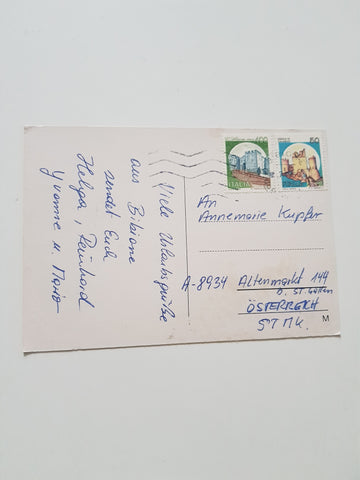 Viele Urlaubsgrüße
aus Bibione
sendet Euch
Helga, Reinhard
Yvonne u. Mario
400
ITALIA
50
An
Annemarie Kupfer
A-8934 Altenmarkt 149
b. St. Gallen
ÖSTERREICH
STMK.
M